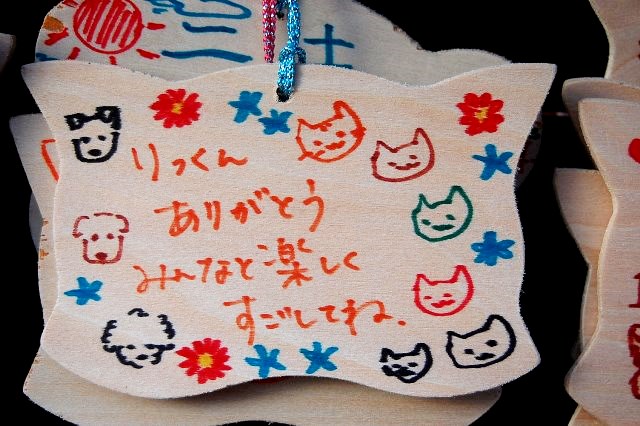 りっくん
ありがとう
みんなと楽しく
すごしてね.